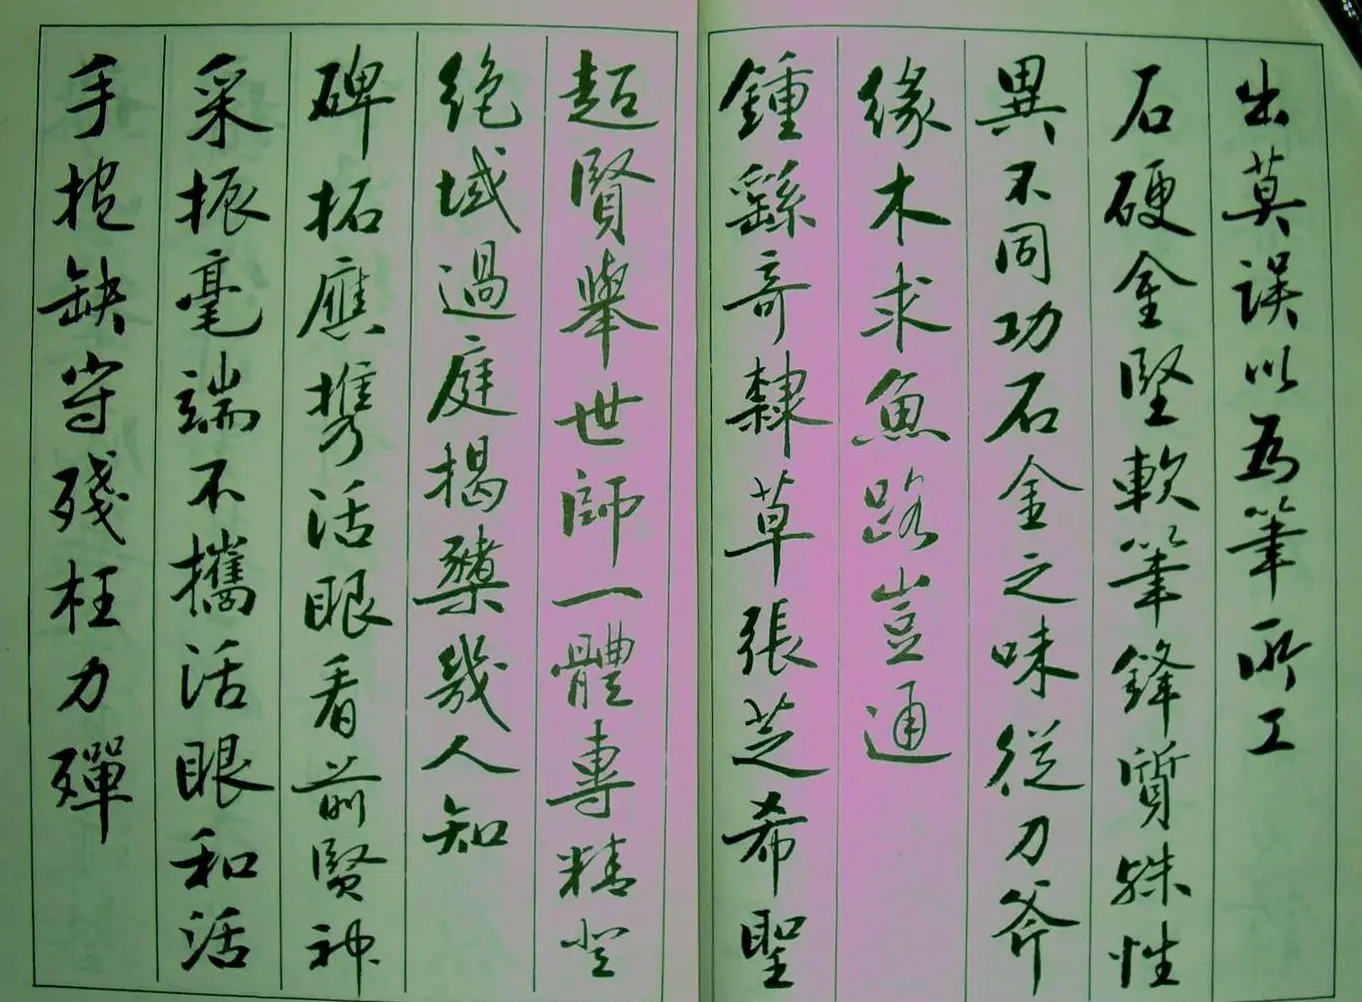 出莫误以为筆所工
石硬金堅軟筆鋒質殊性
異不同功石金之味從刀斧
緣木求魚路豈通
鍾繇奇隸草張芝希聖
超賢舉世師一體專精登
絶域過庭揭櫫幾人知
碑拓應携活眼看前賢神
采振毫端不攜活眼和活
手抱缺守殘枉力殫